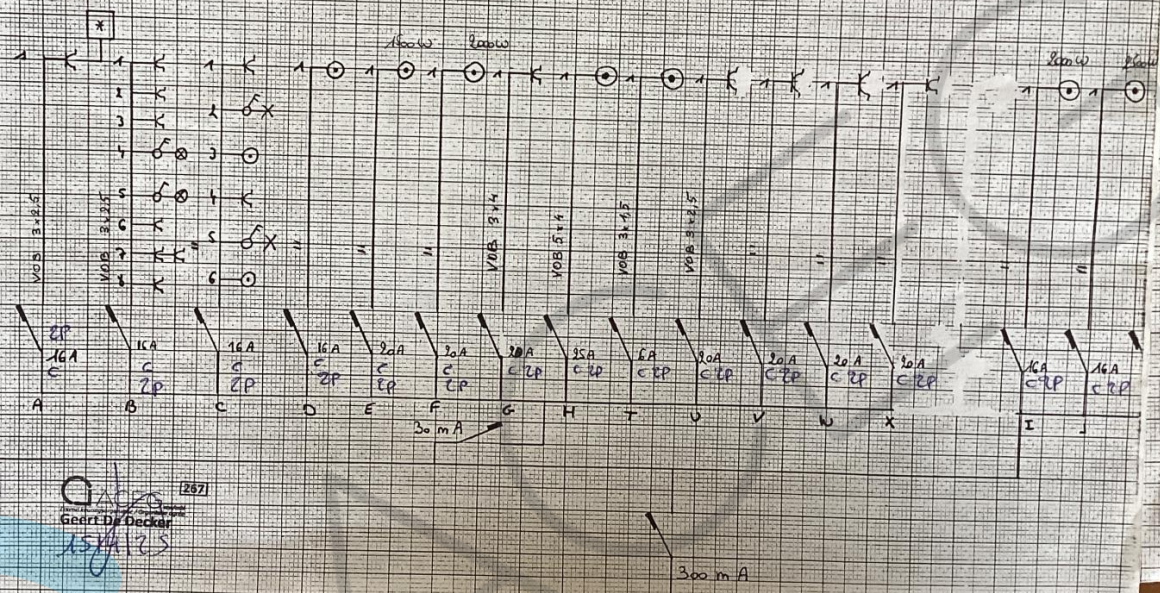 *
1500W 2000W 2000W 2500W
1 1 1 1 1 1 1 1 1 1 1 1 1 1 1 1
2
3
4
5
6
7
8
2
3
4
5
6
VOB 3x2,5
VOB 3x2,5
"
"
"
"
VOB 3x4
VOB 5x4
VOB 3x1,5
VOB 3x2,5
"
"
"
"
"
2P
16A
C
16A
C
2P
16A
C
2P
16A
C
2P
20A
C
2P
20A
C
2P
20A
C 2P
25A
C 2P
16A
C 2P
20A
C 2P
20A
C 2P
20A
C 2P
20A
C 2P
16A
C 2P
16A
C 2P
A B C D E F G H T U V W X I J
30 mA
300 mA
267
ACEG
Geert De Decker